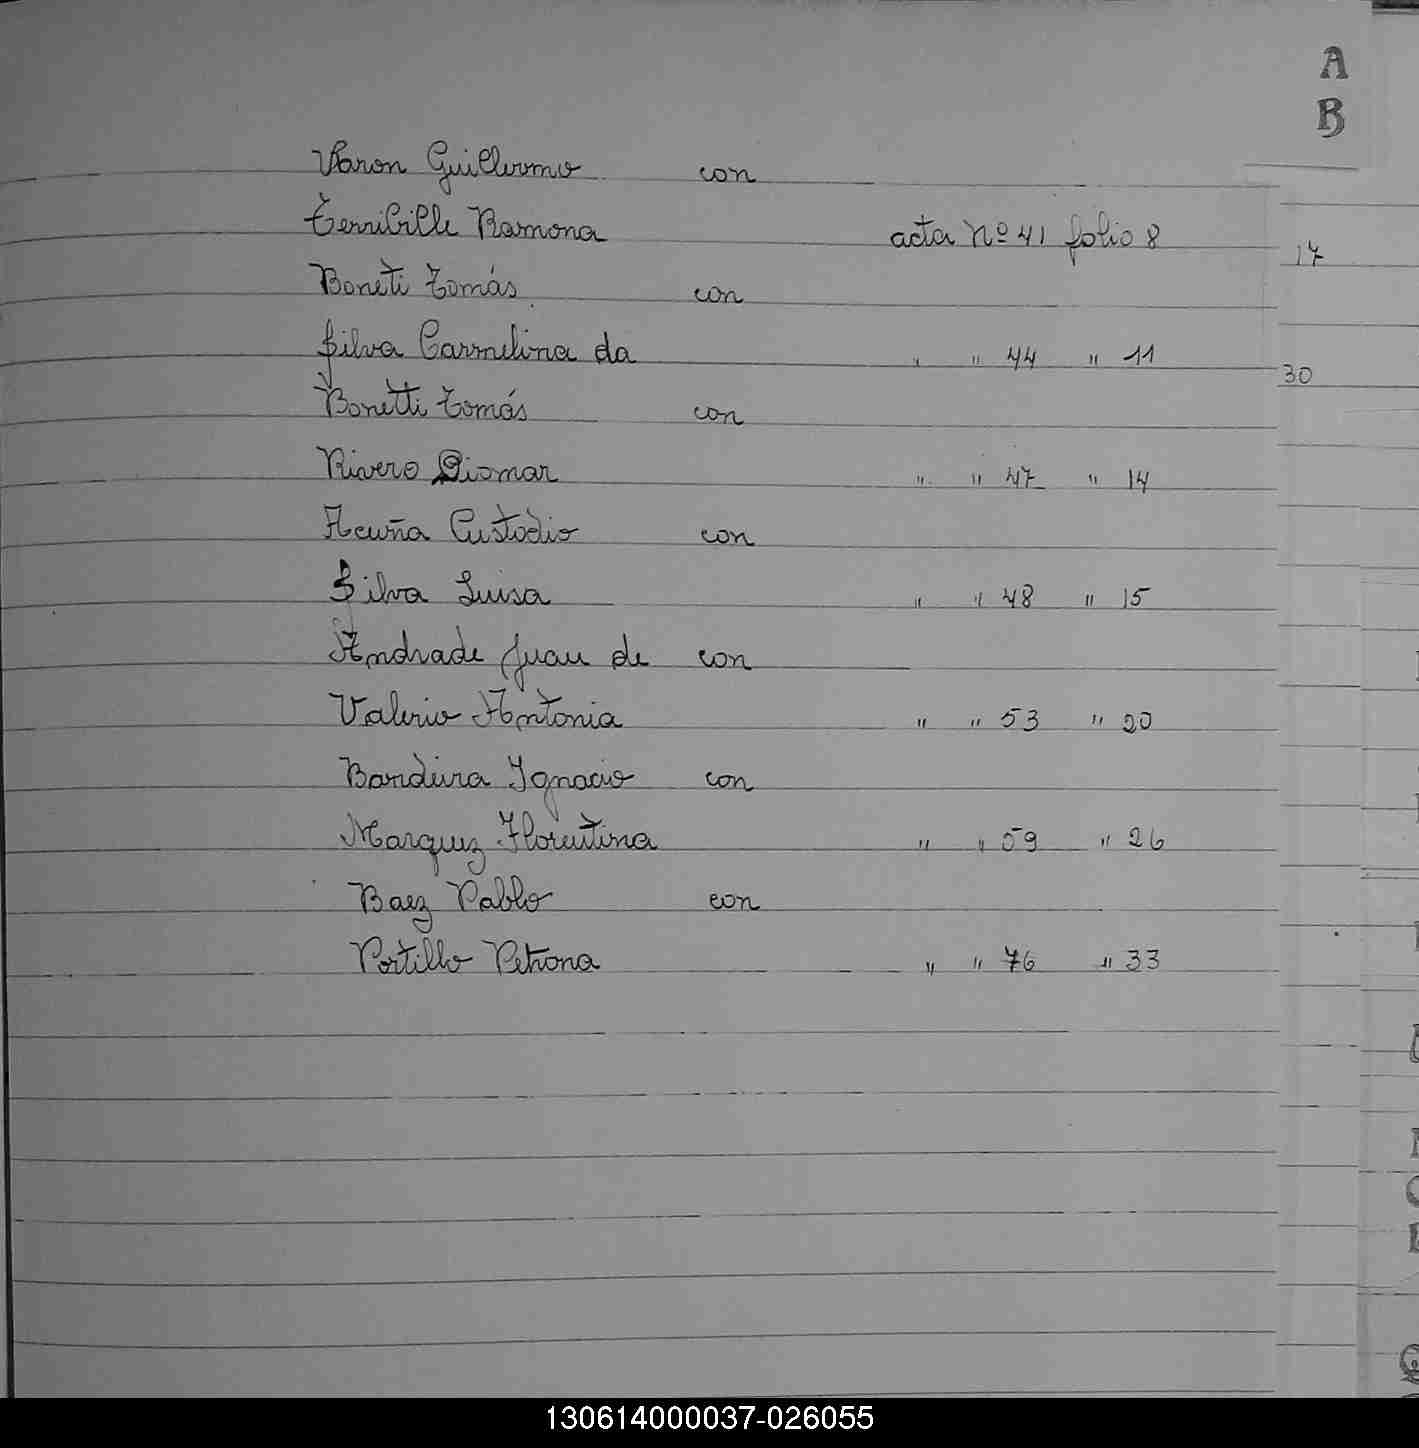 A
B
Varon Guillermo con
Terribille Ramona acta Nº 41 folio 8
17
Boneti Tomás con
Silva Carmelina da " " 44 " 11
30
Bonetti Tomás con
Rivero Diomar " " 47 " 14
Acuña Custodio con
Silva Luisa " " 48 " 15
Andrade Juan de con
Valerio Antonia " " 53 " 20
Bandeira Ignacio con
Marquez Florentina " " 59 " 26
Baez Pablo con
Portillo Petrona " " 76 " 33
130614000037-026055